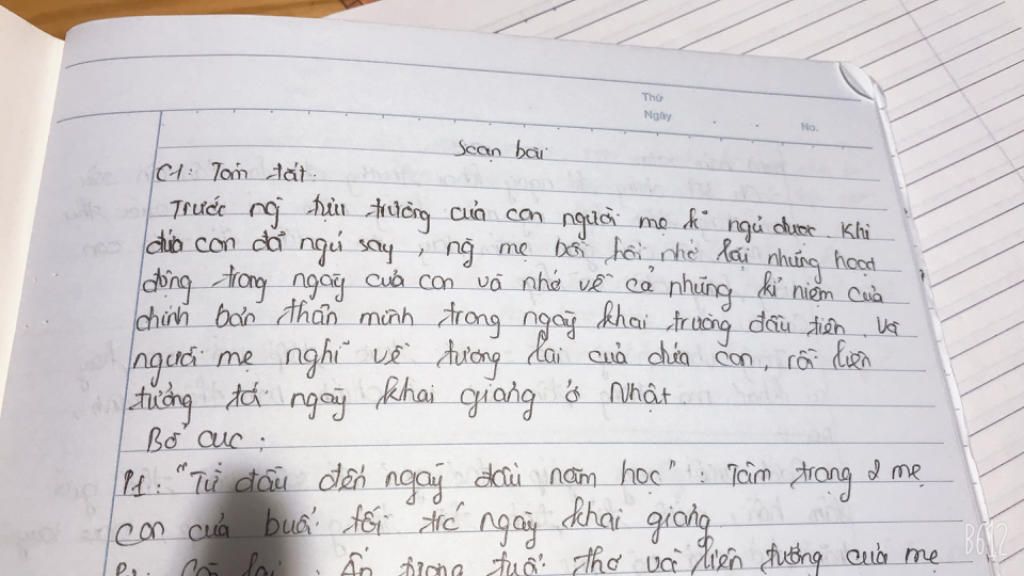 Thứ
Ngày
No.
Soạn bài
C1: Tóm tắt.
Trước ng tựu trường của con người mẹ k ngủ được. Khi
đứa con đã ngủ say, ng mẹ bồi hồi nhớ lại những hoạt
động trong ngày của con và nhớ về cả những kỉ niệm của
chính bản thân mình trong ngày khai trường đầu tiên. Và
người mẹ nghĩ về tương lai của đứa con, rồi liên
tưởng tới ngày khai giảng ở Nhật
Bố cục:
P1: "Từ đầu đến ngày đầu năm học" Tâm trạng 2 mẹ
con của buổi tối trc ngày khai giảng
P2: Còn lại: Ấn tượng tuổi thơ và liên tưởng của mẹ
B612